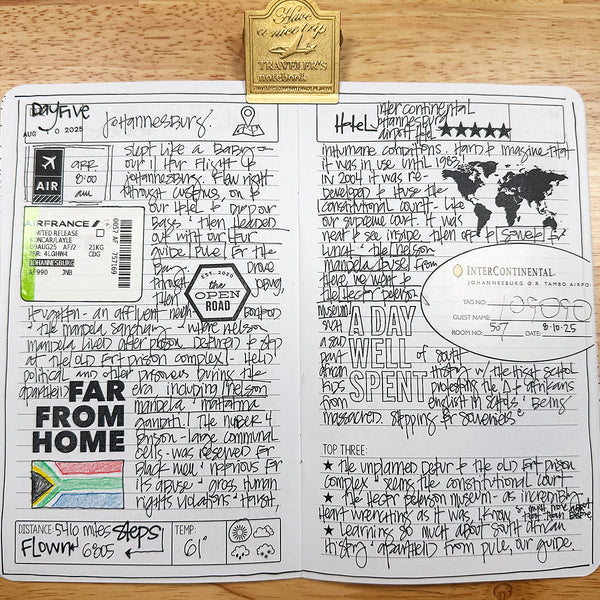 Have
a nice trip
TRAVELER'S
notebook
Day Five
AUG 10 2025
Johannesburg
AIR
arr
8:00
am
slept like a baby
our 11 hr flight to
Johannesburg. Flew right
through customs, on to
our hotel to drop our
bags then headed
out with our tour
guide Pule for the
day. drove
through
AIRFRANCE
LIMITED RELEASE
KONCAR/LAYLE
09AUG25 AF/2 21KG
PNR: 4LGHW4 CDG
JOHANNESBURG
AF990 JNB
0057 AF 757098
EST. 2020
the
OPEN
ROAD
Houghton - an affluent neighborhood
the Mandela Sanctuary - where Nelson
Mandela lived after prison. Detured to stop
at the Old Fort Prison complex - held
political and other prisoners during the
apartheid era including Nelson
Mandela & Mahatma
Gandhi. The number 4
prison - large communal
cells - was reserved for
black men. Notorious for
its abuse, gross human
rights violations, harsh,
FAR
FROM
HOME
DISTANCE: 5410 miles
Flown
Steps
6805
TEMP:
61°
Hotel
Intercontinental
Johannesburg
Airport Hotel
inhumane conditions. Hard to imagine that
it was in use until 1983.
In 2004 it was re-
developed to house the
constitutional court - like
our supreme court. It was
neat to see inside. Then off to Soweto for
lunch & the Nelson
Mandela house. From
there, we went to
the Hector Peterson
museum
such
a sad
part of South
African history w/ the high school
kids protesting the Δ to Afrikaans
from English in schools. Being
massacred. Stopping for souvenirs
A DAY
WELL
SPENT
INTERCONTINENTAL
JOHANNESBURG O.R. TAMBO AIRPORT
TAG NO: 109090
GUEST NAME:
ROOM NO: 507 DATE: 8·10·25
TOP THREE:
★ the unplanned detur to the Old Fort Prison
complex & seeing the constitutional court
★ the Hector Peterson museum - as incredibly
heart wrenching as it was, I know
★ Learning so much about South African
history & apartheid from Pule, our guide.